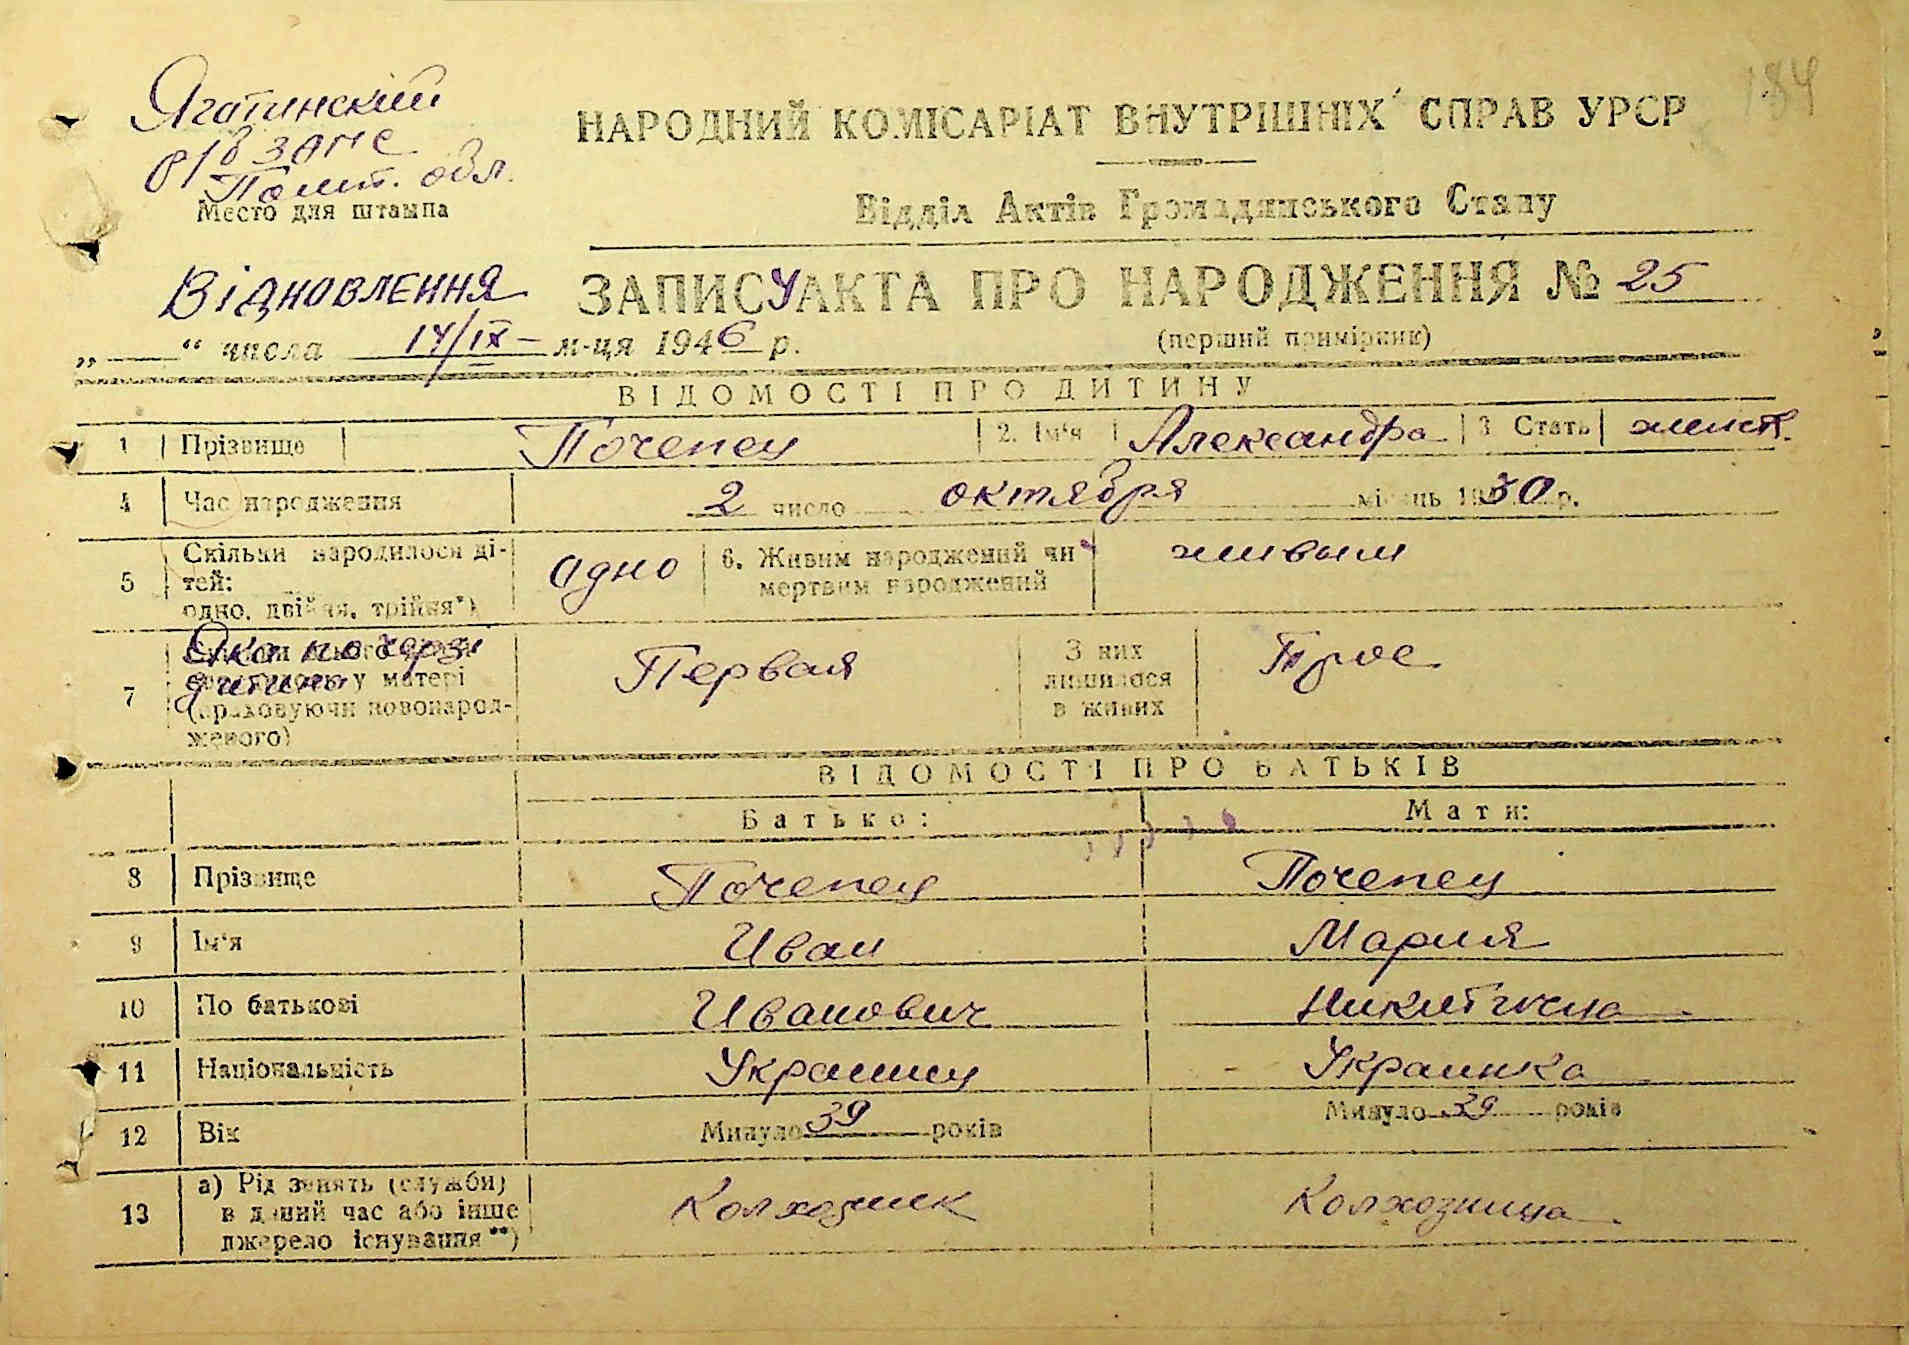 184
Яготинский
р/б ЗАГС
Полт. обл.
Место для штампа
НАРОДНИЙ КОМІСАРІАТ ВНУТРІШНІХ СПРАВ УРСР
Відділ Актів Громадянського Стану
Відновлення ЗАПИСУ АКТА ПРО НАРОДЖЕННЯ № 25
„ — “ числа 14/IX – м-ця 1946 р. (перший примірник)
ВІДОМОСТІ ПРО ДИТИНУ
1 Прізвище Почепец 2. Ім‘я Александра 3 Стать женск.
4 Час народження 2 число октября місяць 1930 р.
5 Скільки народилося ді-
тей:
одно, двійня, трійня*)
одно
6. Живим народжений чи
мертвим народжений
живым
7 Яка по черзі
дитина у матері
(враховуючи новонарод-
женого)
Первая
З них
лишилося
в живих
Трое
ВІДОМОСТІ ПРО БАТЬКІВ
Батько: Мати:
8 Прізвище Почепец Почепец
9 Ім‘я Иван Мария
10 По батькові Иванович Никитична
11 Національність Украинец Украинка
12 Вік Минуло 39 років Минуло 39 років
13 а) Рід занять (служби)
в даний час або інше
джерело існування**)
Колхозник Колхозница